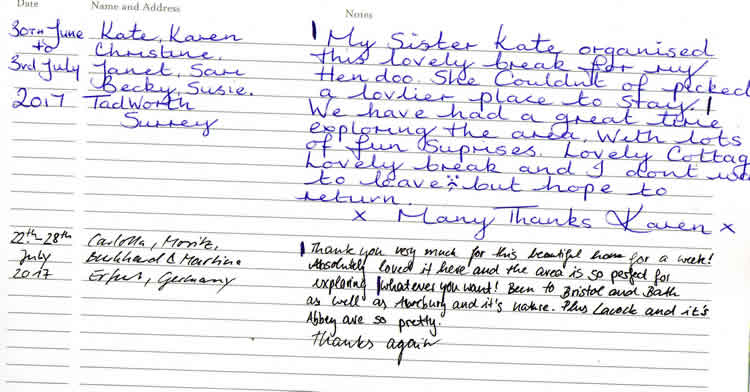 Date Name and Address Notes
30TH June Kate, Karen
to Christine.
3rd July Janet, Sam
Becky, Susie.
2017 Tadworth
Surrey
My Sister Kate organised
this lovely break for my
Hen doo. She Couldnt of picked
a lovlier place to stay
We have had a great time
exploring the area. With lots
of fun Suprises. Lovely Cottag
Lovely break and I dont w
to leave but hope to
return.
x Many Thanks Karen x
22th-28th Carlotta, Moritz,
July Burkhard & Martina
2017 Erfurt, Germany
Thank you very much for this beautiful home for a week!
Absolutely loved it here and the area is so perfect for
exploring whatever you want! Been to Bristol and Bath
as well as and it's nature. Plus Lacock and it's
Abbey are so pretty.
Thanks again